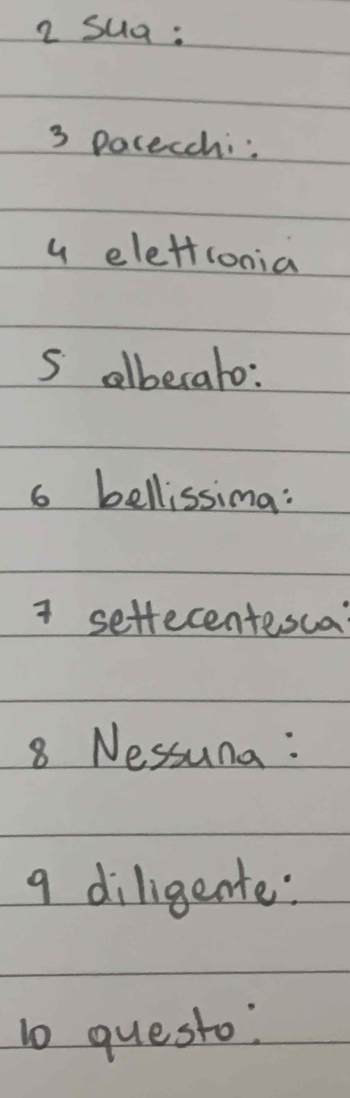 2 sua :
3 parecchi :
4 elettronia
5 alberato:
6 bellissima:
7 settecentesca:
8 Nessuna :
9 diligente:
10 questo: